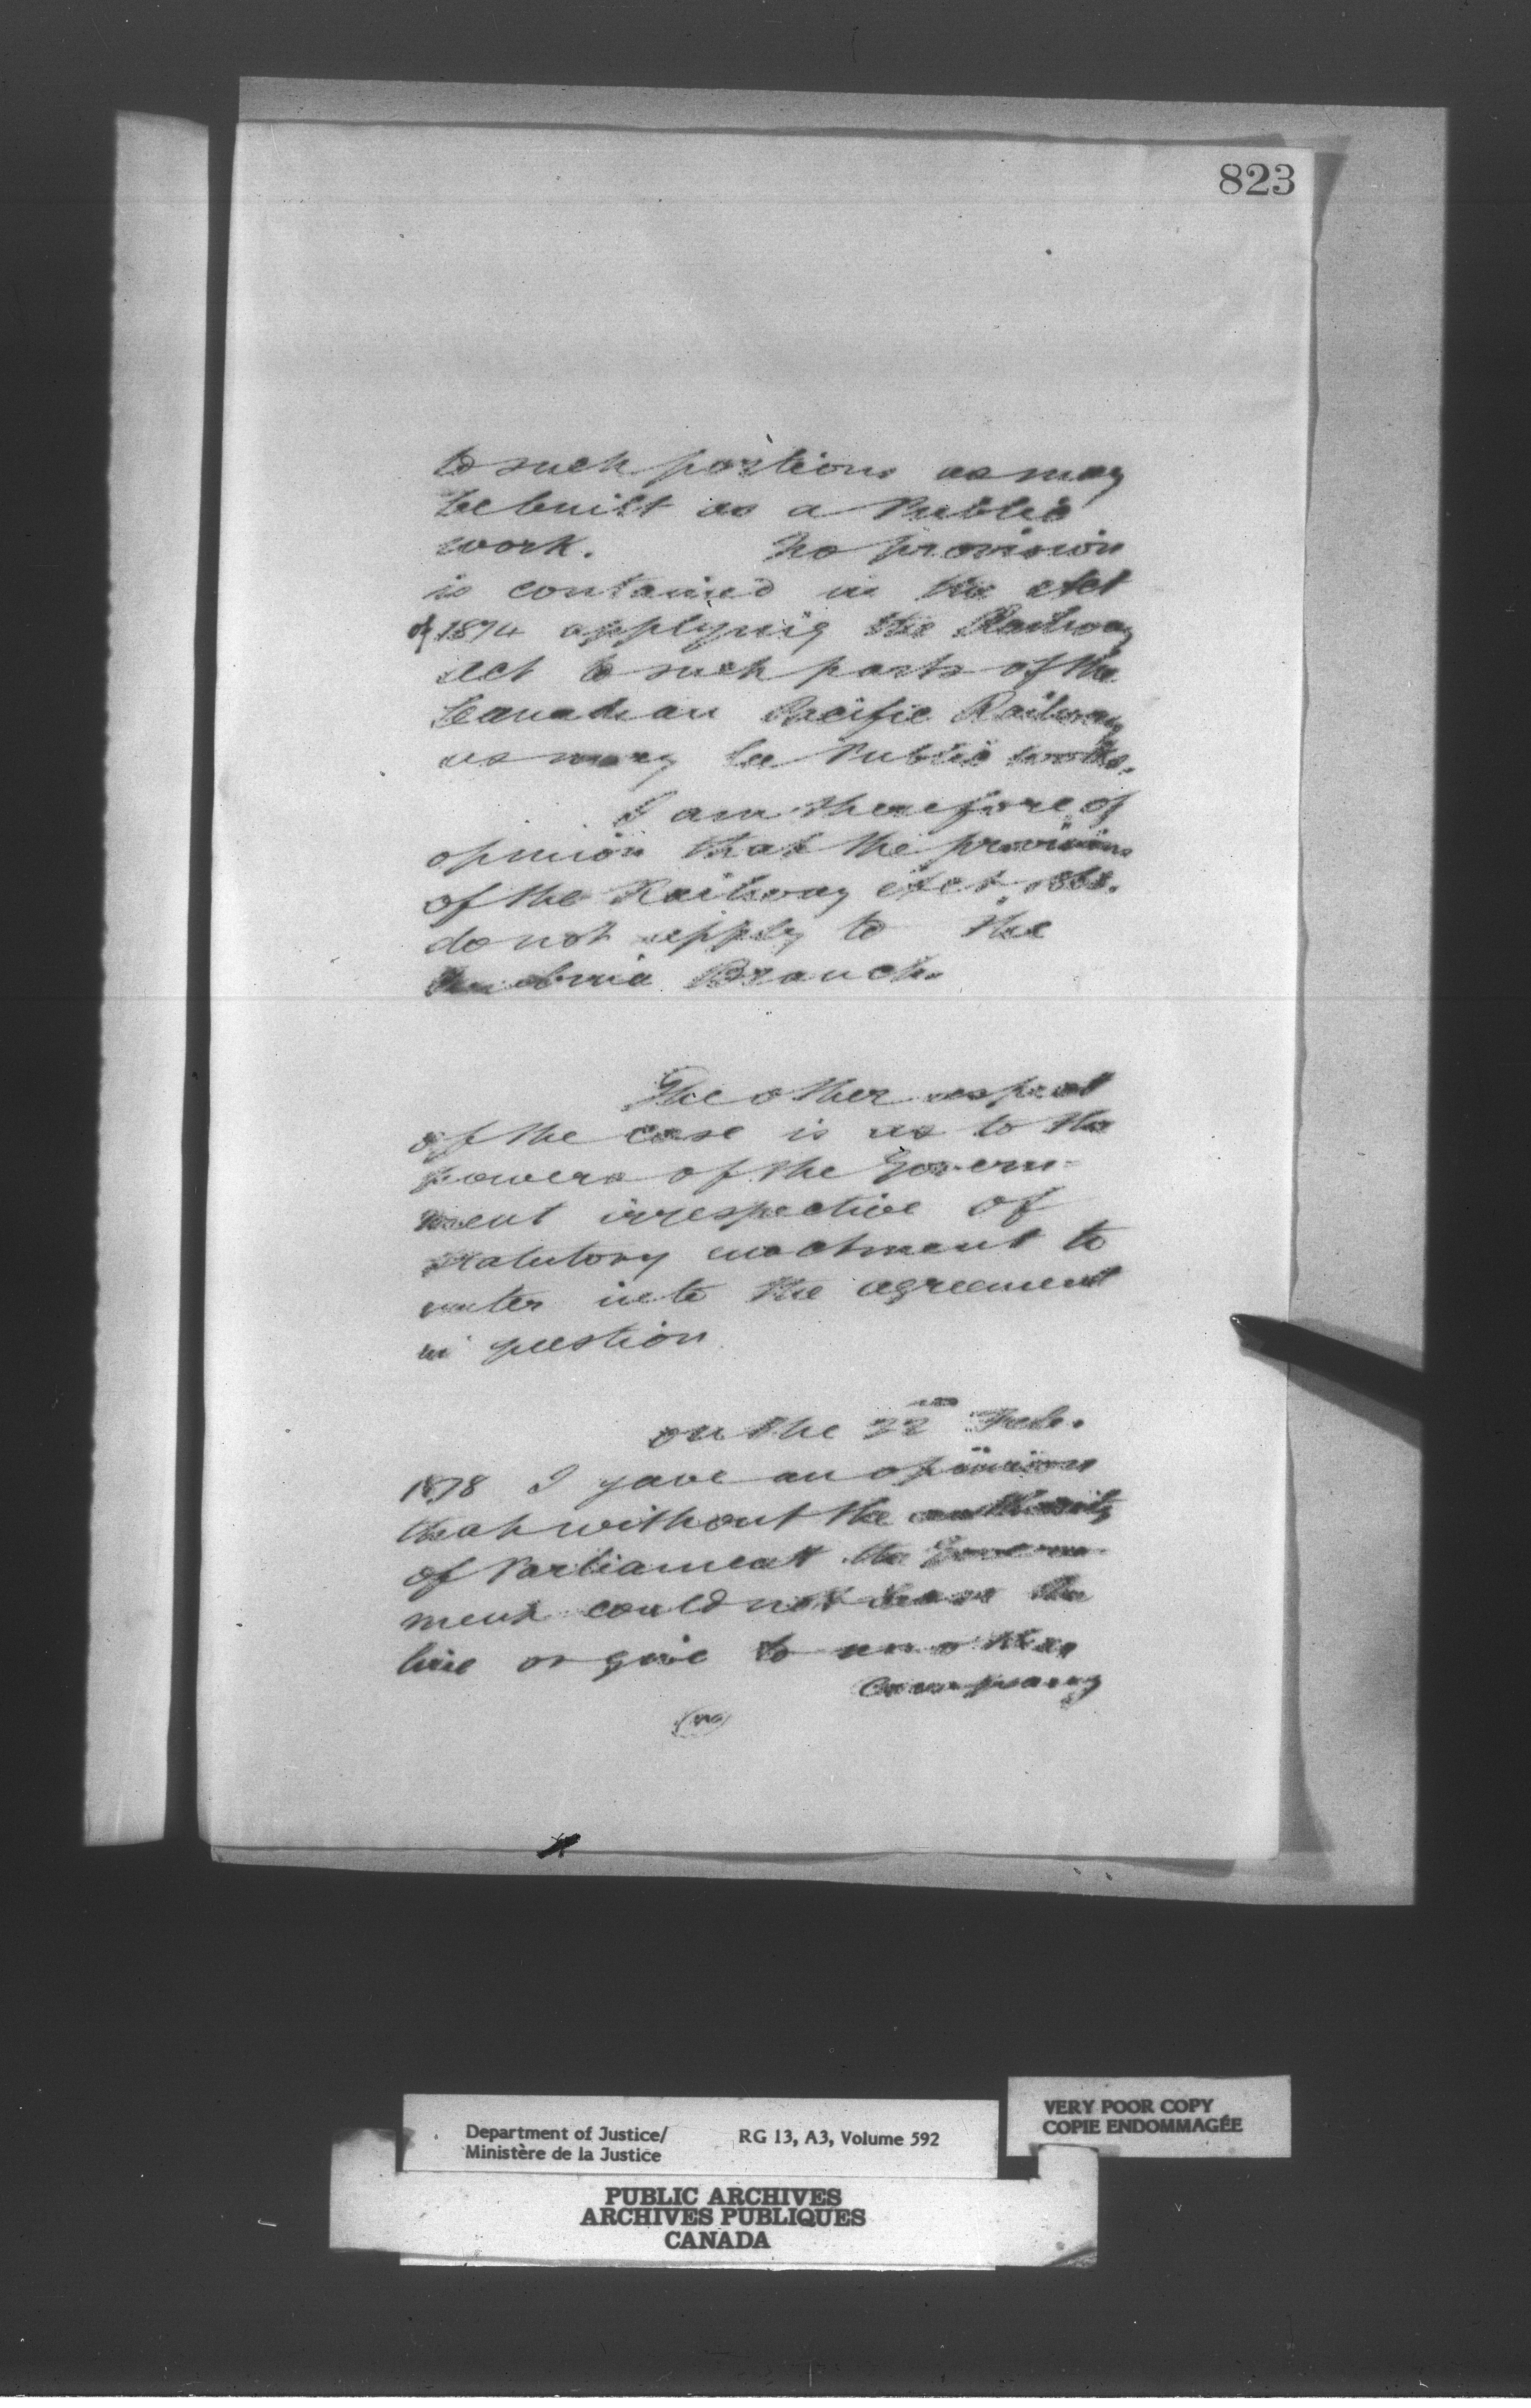 823
to such portions as may
be built as a Public
work. No provision
is contained in the Act
of 1874 applying the Railway
Act to such parts of the
Canadian Pacific Railway
as may be Public works.
I am therefore of
opinion that the provisions
of the Railway Act 1868.
do not apply to the
Pembina Branch.
The other aspect
of the case is as to the
powers of the Govern-
ment irrespective of
statutory enactment to
enter into the agreement
in question
On the 22nd Feb.
1878 I gave an opinion
that without the authority
of Parliament the Govern-
ment could not lease the
line or give to another
Company
Department of Justice/
Ministère de la Justice
RG 13, A3, Volume 592
VERY POOR COPY
COPIE ENDOMMAGÉE
PUBLIC ARCHIVES
ARCHIVES PUBLIQUES
CANADA